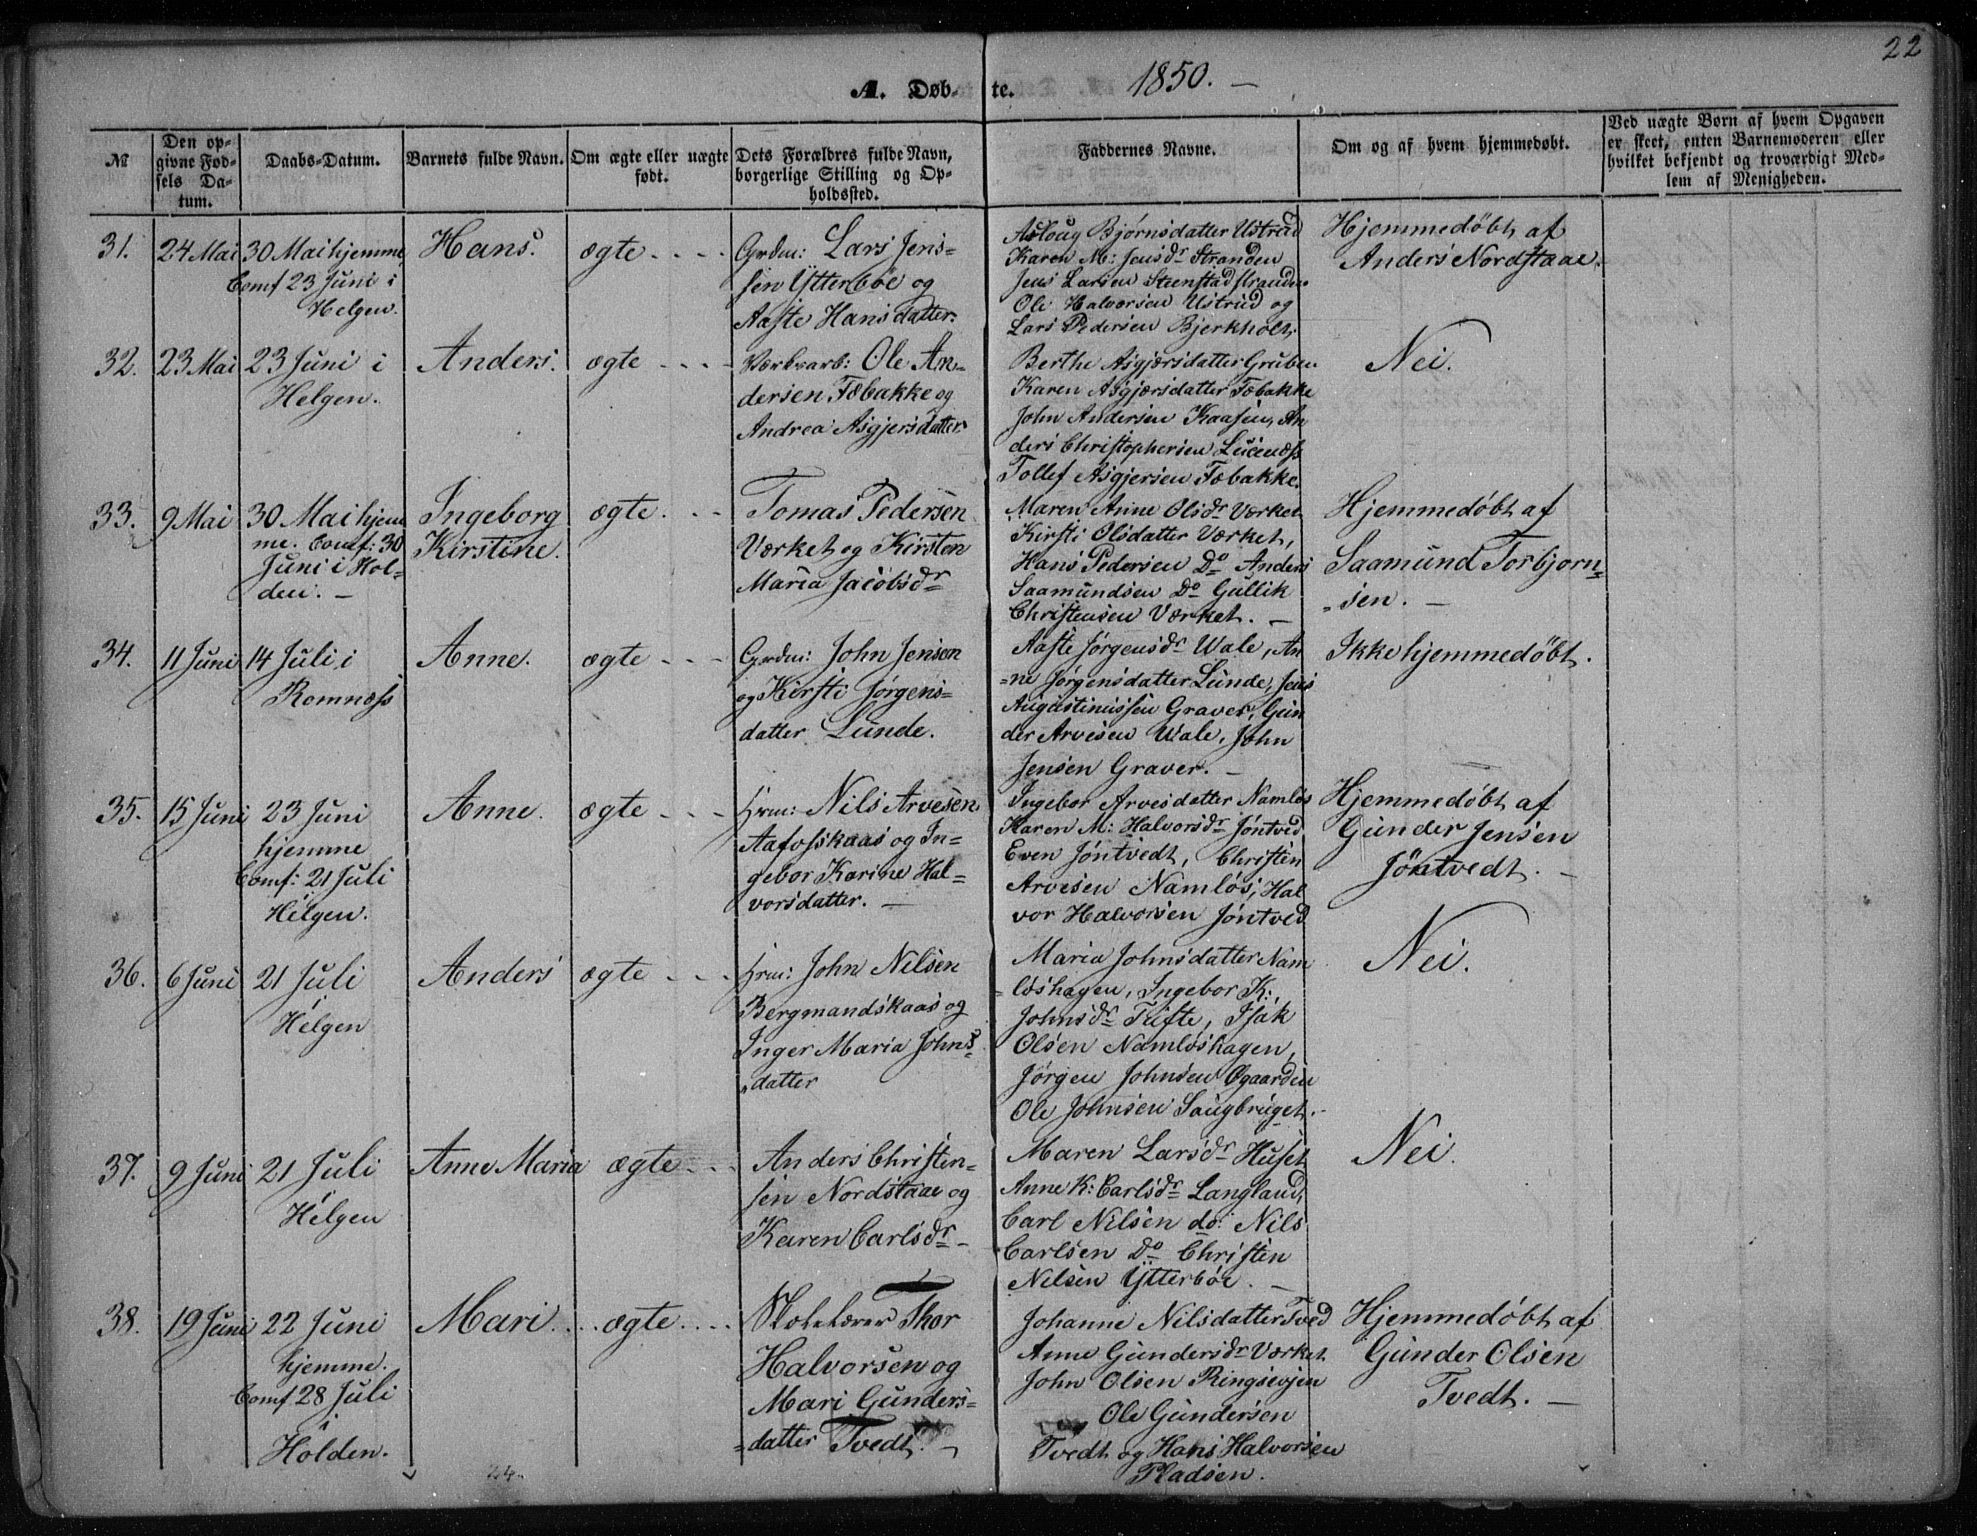 22
A. Døbte. 1850. —
№
Den opgivne Fødsels Datum.
Daabs-Datum.
Barnets fulde Navn.
Om ægte eller uægte født.
Dets Forældres fulde Navn, borgerlige Stilling og Opholdssted.
Faddernes Navne.
Om og af hvem hjemmedøbt.
Ved uægte Børn af hvem Opgaven er skeet, enten Barnemoderen eller hvilket bekjendt og troværdigt Medlem af Menigheden.
31.
24 Mai
30 Mai hjemme
Comf 23 Juni i
Helgen.
Hans.
ægte
Grdm: Lars Jens-
sen Ytterbøe og
Aaste Hansdatter.
Aslaug Bjørnsdatter Ustrud
Karen M: Jensdr Stranden
Jens Larsen Steenstadstranden
Ole Halvorsen Ustrud og
Lars Pedersen Bjerkholt.
Hjemmedøbt af
Anders Nordstaae.
32.
23 Mai
23 Juni i
Helgen.
Anders.
ægte
Værksarb: Ole An-
dersen Fæbakke og
Andrea Asgjersdatter
Berthe Asgjærsdatter Gruben
Karen Asgjærsdatter Fæbakke
John Andersen Kaasen, An
ders Christophersen
Tollef Asgjersen Fæbakke.
Nei.
33.
9 Mai
30 Mai hjem
me. Comf: 30
Juni i Hol-
den. —
Ingeborg
Kirstine.
ægte.
Tomas Pedersen
Værket og Kirsten
Maria Jacobsdr
Maren Anne Olsdr Værket
Kirsti Olsdatter Værket,
Hans Pedersen Do Anders
Saamundsen Do Gullik
Christensen Værket. —
Hjemmedøbt af
Saamund Torbjørn-
sen. —
34.
11 Juni
14 Juli i
Romnæss
Anne.
ægte
Grdm: John Jensen
og Kirsti Jørgens-
datter Lunde.
Aaste Jørgensdr Wale, An
-ne Jørgensdatter Lunde, Jens
Augustinussen Graver, Gun
der Arvesen Wale, John
Jensen Graver. —
Ikke hjemmedøbt.
35.
15 Juni
23 Juni
hjemme
Comf: 21 Juli
Helgen.
Anne.
ægte
Hrm: Nils Arvesen
Aafosskaas og In-
gebor Karine Hal-
vorsdatter. —
Ingebor Arvesdatter Namløs
Karen M: Halvorsdr Jøntved
Even Jøntvedt, Christen
Arvesen Namløs, Hal
vor Halvorsen Jøntved
Hjemmedøbt af
Gunder Jensen
Jøntvedt. —
36.
6 Juni
21 Juli
Helgen
Anders
ægte
Hrm: John Nilsen
Bergmandskaas og
Inger Maria Johns-
datter
Maria Johnsdatter Nam
løshagen, Ingebor K:
Johnsdr Tufte, Isak
Olsen Namløshagen,
Jørgen Johnsen Øgaarden
Ole Johnsen Saugbruget.
Nei.
37.
9 Juni
21 Juli
Helgen
Anne Maria
ægte
Anders Christen-
sen Nordstaae og
Karen Carlsdr —
Maren Larsdr Huset
Anne K: Carlsdr Langland,
Carl Nilsen do: Nils
Carlsen Do Christen
Nilsen Ytterbøe. —
Nei.
38.
19 Juni
22 Juni
hjemme.
Comf 28 Juli
i
Holden.
Mari
ægte
Skolelærer Thor
Halvorsen og
Mari Gunders-
datter Tvedt. —
Johanne Nilsdatter Tved
Anne Gundersdr Værket
John Olsen Ringsevjen
Ole Gundersen
Tvedt og Hans Halvorsen
Pladsen.
Hjemmedøbt af
Gunder Olsen
Tvedt. —
24.